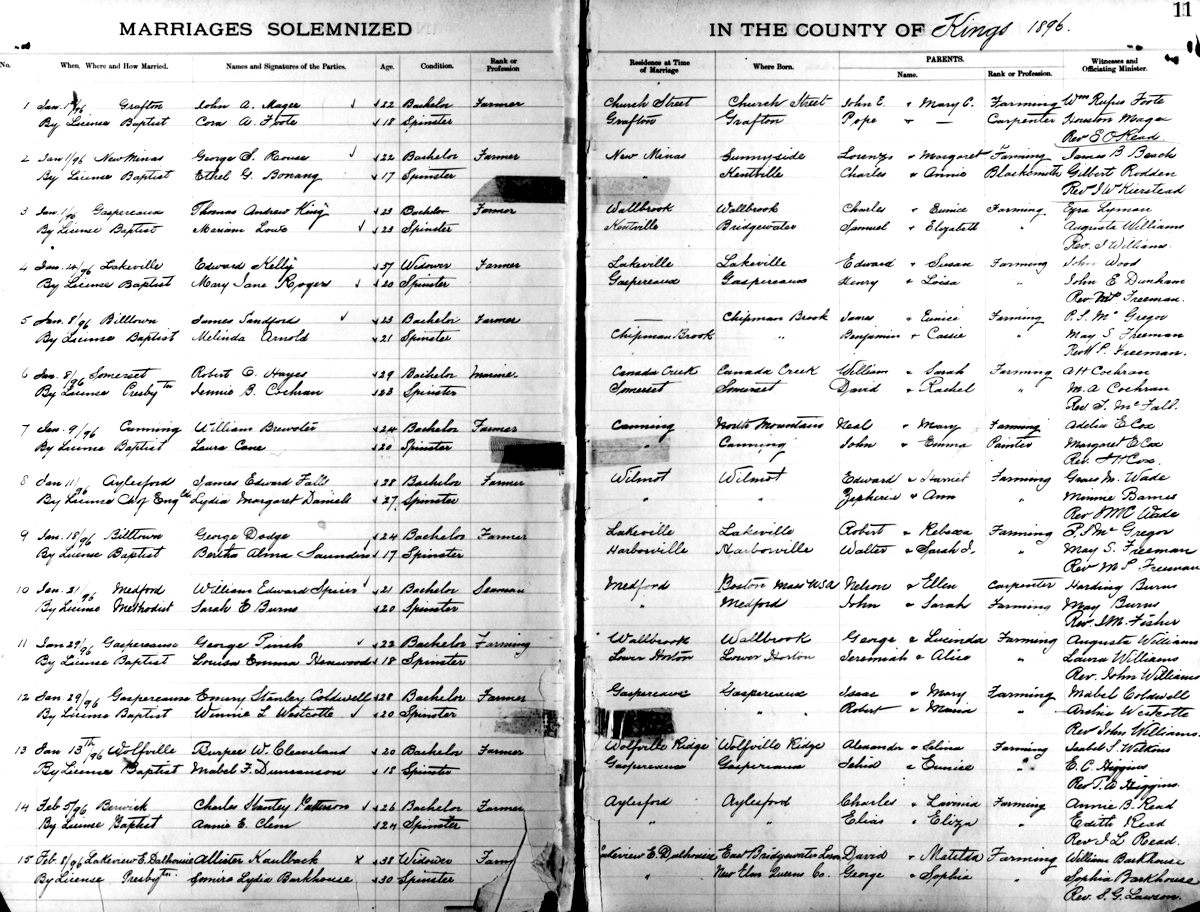 11
MARRIAGES SOLEMNIZED IN THE COUNTY OF Kings 1896.
No. When, Where and How Married. Names and Signatures of the Parties. Age. Condition. Rank or Profession Residence at Time of Marriage Where Born. PARENTS. Name. Rank or Profession. Witnesses and Officiating Minister.
1 Jan. 1/96 Grafton John A. Magee 22 Bachelor Farmer Church Street Church Street John E. " Mary C. Farming Wm Rufus Foote
By License Baptist Cora A. Foote 18 Spinster Grafton Grafton Pope " — Carpenter Houston Magee
Rev E O Read
2 Jan 1/96 New Minas George S. Rouse 22 Bachelor Farmer New Minas Sunnyside Lorenzo " Margaret Farming James B Beach
By License Baptist Ethel G. Bonang 17 Spinster " Kentville Charles " Annie Blacksmith Gilbert Rodden
Rev I W Kierstead
3 Jan 1/96 Gaspereaux Thomas Andrew King 23 Bachelor Farmer Wallbrook Wallbrook Charles " Eunice Farming Ezra Lyman
By License Baptist Mariam Lowe 23 Spinster Kentville Bridgewater Samuel " Elizabeth " Augusta Williams
Rev. J Williams
4 Jan. 14/96 Lakeville Edward Kelly 57 Widower Farmer Lakeville Lakeville Edward " Susan Farming John Wood
By License Baptist Mary Jane Rogers 20 Spinster Gaspereaux Gaspereaux Henry " Loisa " John E Dunham
Rev Freeman
5 Jan. 8/96 Billtown James Sandford 23 Bachelor Farmer — Chipman Brook James " Eunice Farming P. S. McGregor
By License Baptist Melinda Arnold 21 Spinster Chipman Brook " Benjamin " Cassie " May S. Freeman
Rev P. Freeman.
6 Jan. 8/96 Somerset Robert C. Hayes 29 Bachelor Marine Canada Creek Canada Creek William " Sarah Farming A H Cochran
By License Presbytn Jennie B. Cochran 22 Spinster Somerset Somerset David " Rachel " M. A Cochran
Rev J. McFall.
7 Jan. 9/96 Canning William Brewster 24 Bachelor Farmer Canning North Mountain Neal " Mary Farming Adelia E Cox
By License Baptist Laura Cane 20 Spinster " Canning John " Emma Painter Margaret E Cox
Rev. H Cox.
8 Jan 11/96 Aylesford James Edward Falls 28 Bachelor Farmer Wilmot Wilmot Edward " Harriet Farming Grace M. Wade
By License Ch of Engld Lydia Margaret Daniels 27 Spinster " " Zepheria " Ann " Minnie Barnes
Rev J M C Wade
9 Jan. 18/96 Billtown George Dodge 24 Bachelor Farmer Lakeville Lakeville Robert " Rebecca Farming P. S McGregor
By License Baptist Bertha Alma Saunders 17 Spinster Harborville Harborville Walter " Sarah J. " May S. Freeman
Rev M P Freeman
10 Jan. 21/96 Medford William Edward Spicer 21 Bachelor Seaman Medford Boston Mass USA Nelson " Ellen Carpenter Harding Burns
By License Methodist Sarah E Burns 20 Spinster " Medford John " Sarah Farming May Burns
Rev. J M. Fisher
11 Jan 29/96 Gaspereaux George Pinch 22 Bachelor Farming Wallbrook Wallbrook George " Lucinda Farming Augusta Williams
By License Baptist Louisa Emma Henwood 18 Spinster Lower Horton Lower Horton Jeremiah " Alice " Laura Williams
Rev. John Williams
12 Jan 29/96 Gaspereaux Emery Stanley Coldwell 28 Bachelor Farmer Gaspereaux Gaspereaux Isaac " Mary Farming Mabel Coldwell
By License Baptist Winnie L Westcotte 20 Spinster " " Robert " Maria " Archie Westcotte
Rev John Williams.
13 Jan 13th 96 Wolfville Burpee W. Cleaveland 20 Bachelor Farmer Wolfville Ridge Wolfville Ridge Alexander " Selina Farming Isabel S. Wilkins
By License Baptist Mabel F. Duncanson 18 Spinster Gaspereaux Gaspereaux " Eunice " E. C Higgins
Rev T. A Higgins.
14 Feb 5/96 Berwick Charles Stanley Patterson 26 Bachelor Farmer Aylesford Aylesford Charles " Lavinia Farming Annie B. Read
By License Baptist Annie E. Clem 24 Spinster Elias " Eliza " Edith Read
Rev J L Read.
15 Feb 8/96 Lakeview E. Dalhousie Allister Kaulback 38 Widower Farm Lakeview E. Dalhousie East Bridgewater Lun David " Matilda Farming William Barkhouse
By License Presbytn Lydia Barkhouse 30 Spinster " New Elm Queens Co. George " Sophia " Sophia Barkhouse
Rev. S. G. Lawson.